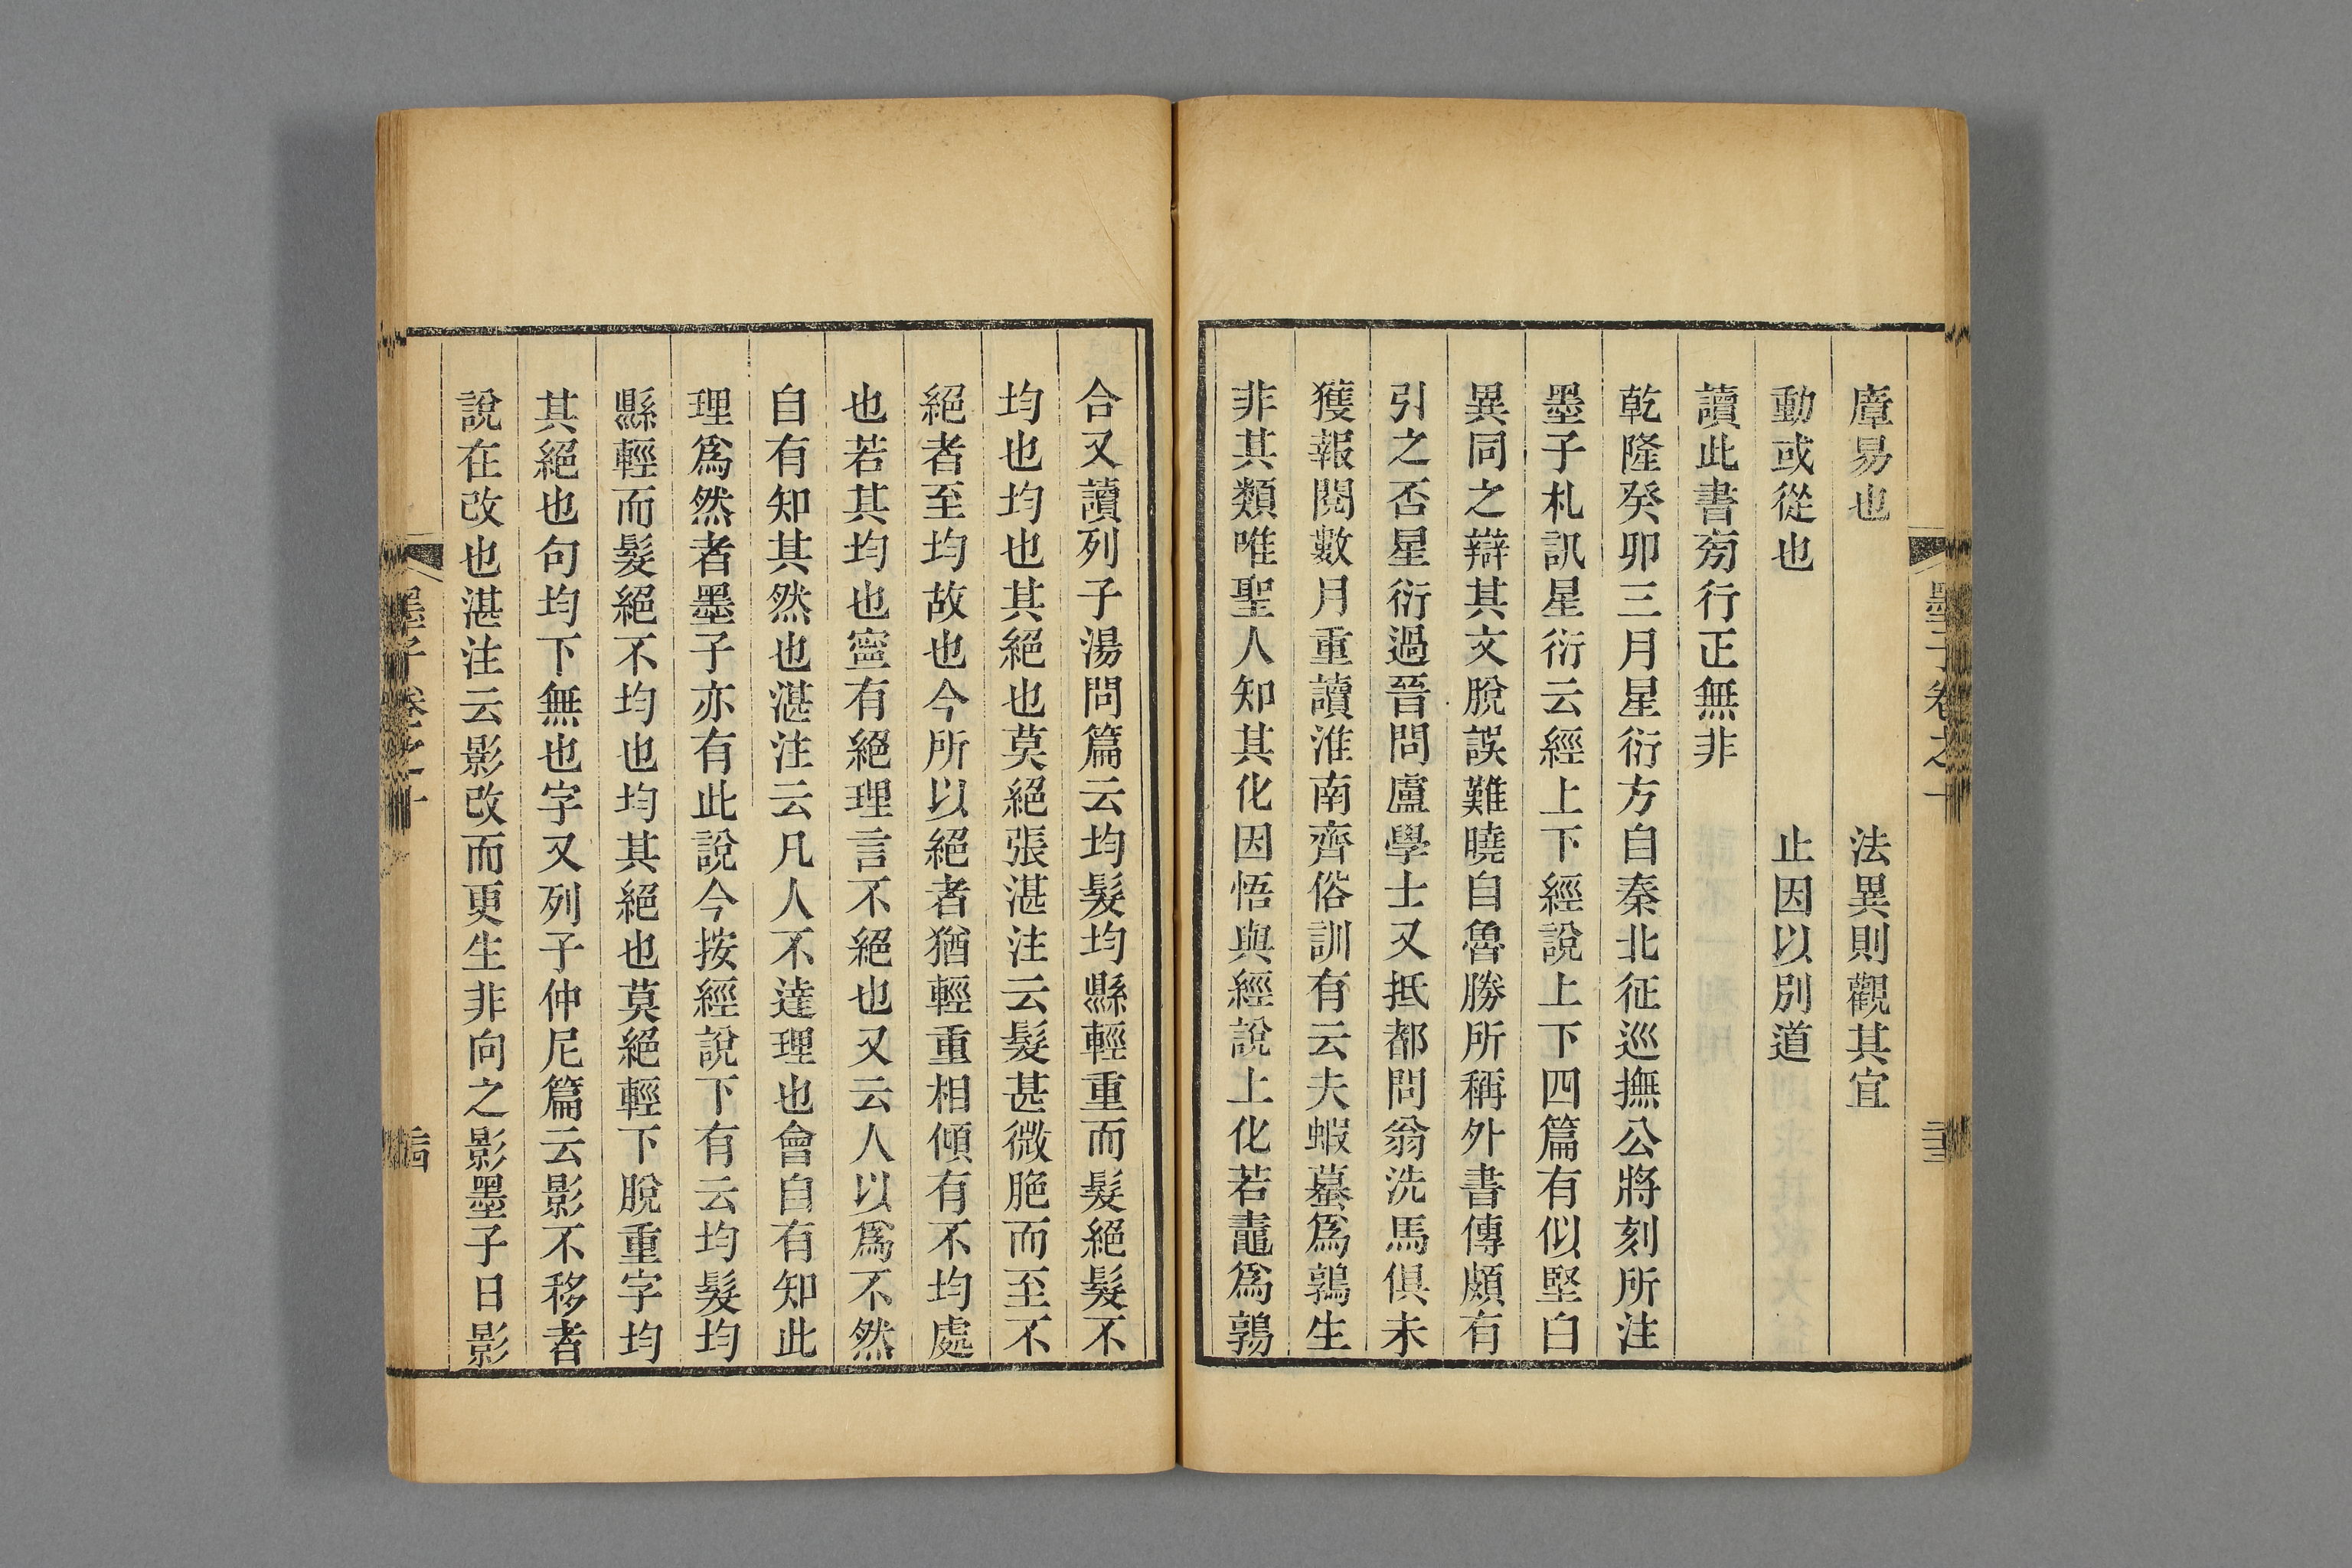 墨子卷之十
庫易也 法異則觀其宜
動或從也 止因以別道
讀此書㫄行正無非
乾隆癸卯三月星衍方自秦北征巡撫公將刻所注
墨子札訊星衍云經上下經說上下四篇有似堅白
異同之辯其文脫誤難曉自魯勝所稱外書傳頗有
引之否星衍過晉問盧學士又抵都問翁洗馬俱未
獲報閱數月重讀淮南齊俗訓有云夫蝦蟇爲鶉生
非其類唯聖人知其化因悟與經說上化若鼃爲鶉
合又讀列子湯問篇云均髮均縣輕重而髮絕髮不
均也均也其絕也莫絕張湛注云髮甚微脃而至不
絕者至均故也今所以絕者猶輕重相傾有不均處
也若其均也寧有絕理言不絕也又云人以爲不然
自有知其然也湛注云凡人不達理也會自有知此
理爲然者墨子亦有此說今按經說下有云均髮均
縣輕而髮絕不均也均其絕也莫絕輕下脫重字均
其絕也句均下無也字又列子仲尼篇云影不移者
說在改也湛注云影改而更生非向之影墨子曰影
墨子卷之十